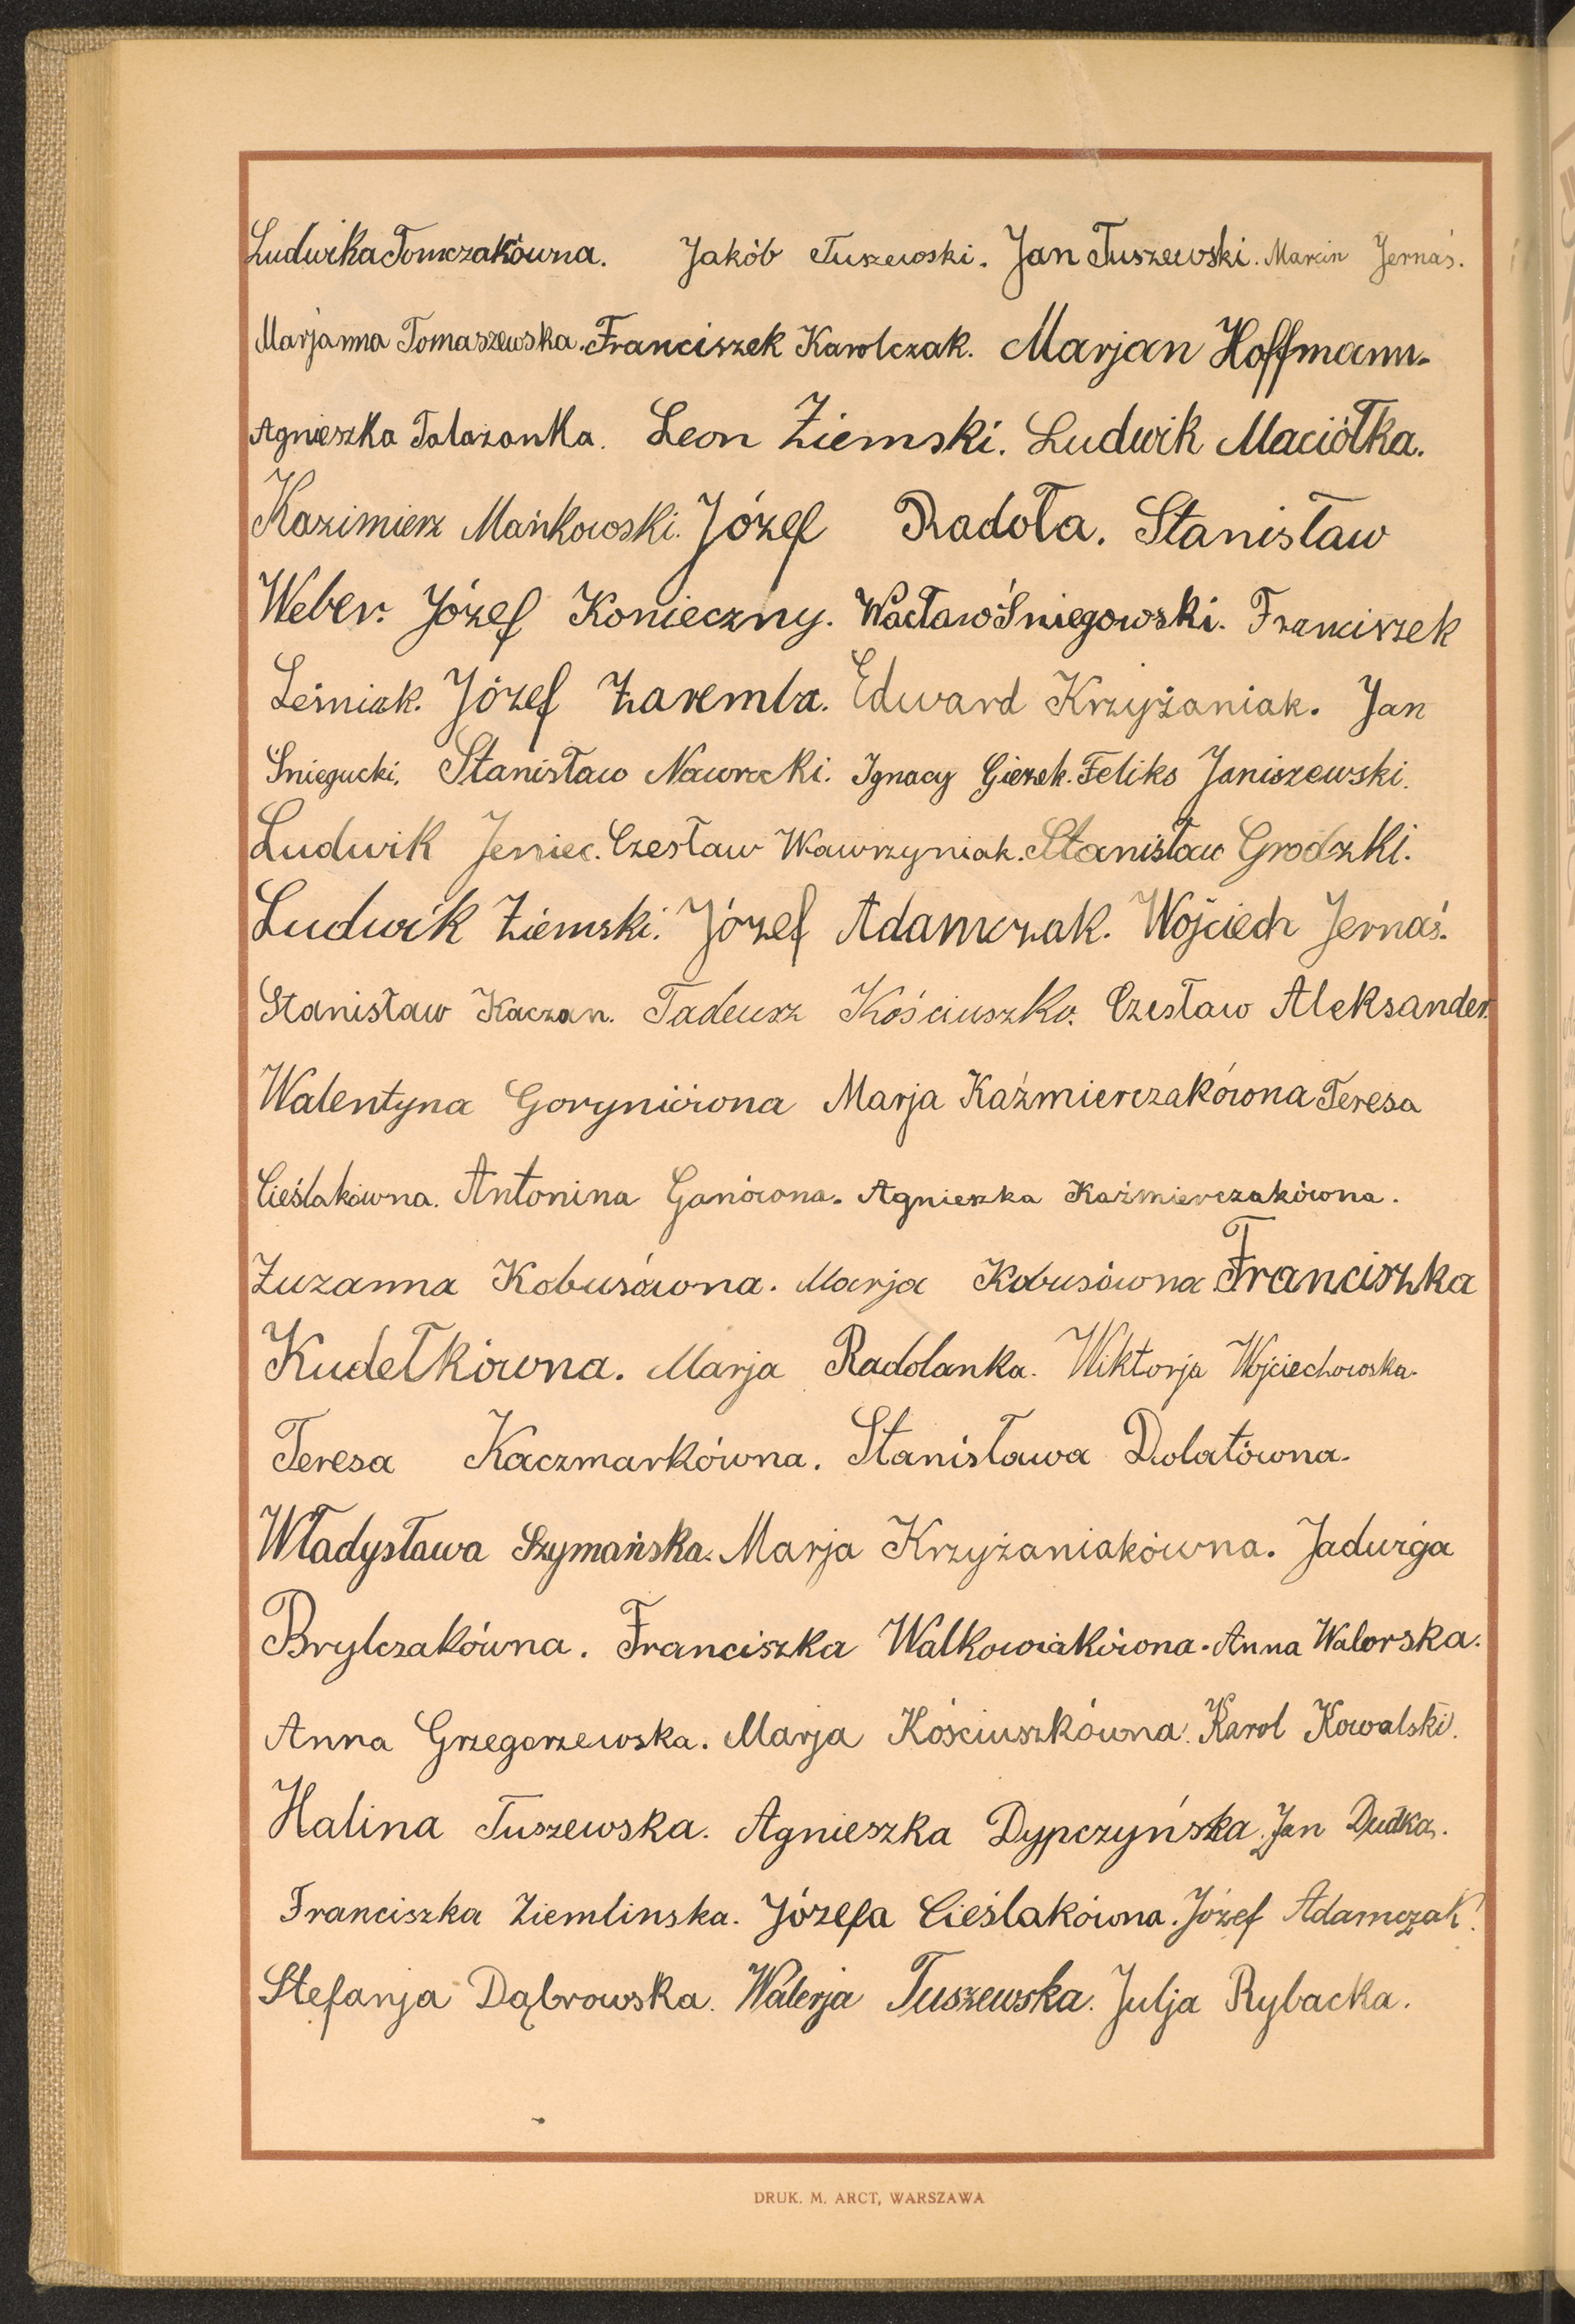 Ludwika Tomczakówna. Jakób Tuszewski. Jan Tuszewski. Marcin Jernaś.
Marjanna Tomaszewska. Franciszek Karolczak. Marjan Hoffmann.
Agnieszka Talazanka. Leon Ziemski. Ludwik Maciołka.
Kazimierz Mańkowski. Józef Radoła. Stanisław
Weber. Józef Konieczny. Wacław Śniegowski. Franciszek
Leśniak. Józef Zaremba. Edward Krzyżaniak. Jan
Śniegucki. Stanisław Nawrocki. Ignacy Gierek. Feliks Janiszewski.
Ludwik Jeniec. Czesław Wawrzyniak. Stanisław Grodzki.
Ludwik Ziemski. Józef Adamczak. Wojciech Jernaś.
Stanisław Kaczan. Tadeusz Kościuszko. Czesław Aleksander.
Walentyna Gorynówna Marja Kaźmierczakówna Teresa
Cieślakówna. Antonina Ganówna. Agnieszka Kaźmierczakówna.
Zuzanna Kobusówna. Marja Kobusówna Franciszka
Kudełkówna. Marja Radolanka. Wiktorja Wojciechowska.
Teresa Kaczmarkówna. Stanisława Dolatówna.
Władysława Szymańska. Marja Krzyżaniakówna. Jadwiga
Brylczakówna. Franciszka Walkowiakówna. Anna Walorska.
Anna Grzegorzewska. Marja Kościuszkówna. Karol Kowalski.
Halina Tuszewska. Agnieszka Dypczyńska. Jan Dudka.
Franciszka Ziemlinska. Józefa Cieślakówna. Józef Adamczak.
Stefanja Dąbrowska. Walerja Tuszewska. Julja Rybacka.
DRUK. M. ARCT, WARSZAWA